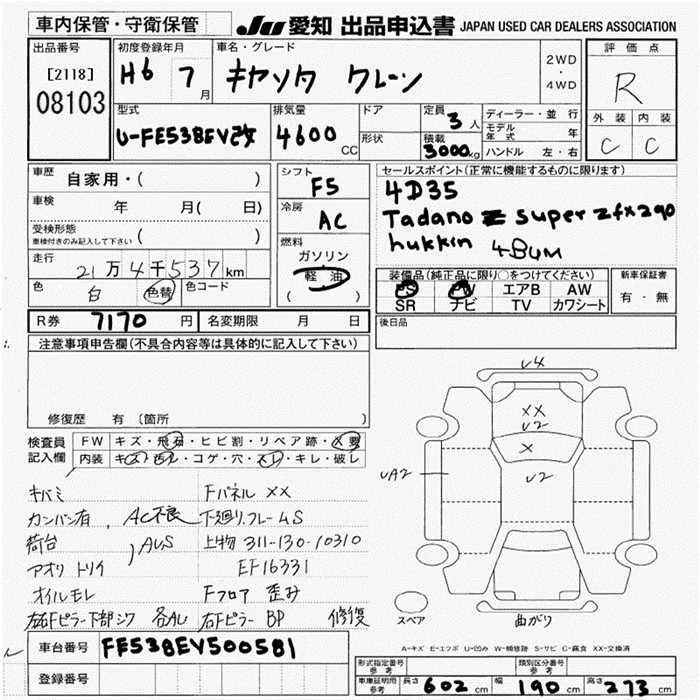 車内保管・守衛保管
JU 愛知 出品申込書 JAPAN USED CAR DEALERS ASSOCIATION
出品番号
[2118]
08103
初度登録年月
H6 7月
車名・グレード
キャンタ クレーン
2WD
・
4WD
評価点
R
外装 内装
C C
型式
U-FE538EV改
排気量
4600 CC
ドア
形状
定員
3人
積載
3000kg
ディーラー・並行
モデル年式 年
ハンドル 左・右
車歴
自家用・( )
車検
年 月( 日)
受検形態
車検付きのみ記入して下さい ( )
走行
21万4千537km
色
白
色替
色コード
シフト
F5
冷房
AC
燃料
ガソリン
軽油
( )
セールスポイント(正常に機能するものに限ります)
4D35
Tadano Z super zfx290
hukkin 4BUM
装備品(純正品に限り○をつけてください)
PS PW エアB AW
SR ナビ TV カワシート
新車保証書
有・無
R券 7170円
名変期限 月 日
後日品
注意事項申告欄(不具合内容等は具体的に記入して下さい)
修復歴 有(箇所 )
検査員記入欄
FW キズ・飛石・ヒビ割・リペア跡・X要
内装 キズ・汚レ・コゲ・穴・スレ・キレ・破レ
キバミ Fパネル XX
カンバン有 AC不良 下廻り.フレームS
荷台 AUS 上物 311-130-10310
アオリ トリイ EF16331
オイルモレ Fフロア 歪み
左右Fピラー下部シワ 各AU 右Fピラー BP 修復
U4
XX
U2
X
UA2
U2
スペア
曲がり
A-キズ E-エクボ U-凹み W-補修跡 S-サビ C-腐食 XX-交換済
車台番号 FE538EV500581
登録番号
形式指定番号 参考
類別区分番号 参考
車庫証明用 参考 長さ 602cm 幅 190cm 高さ 273cm